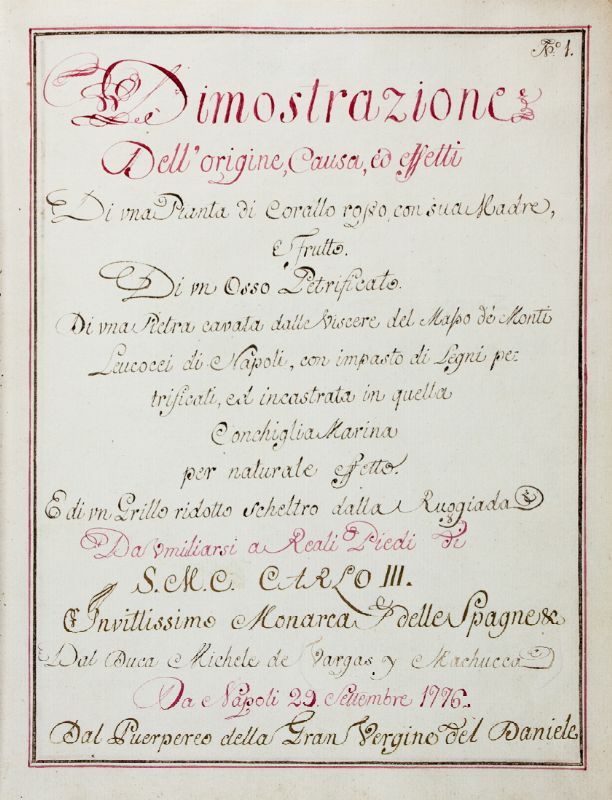 N.º 1.
Dimostrazione
Dell'origine, Causa, ed effetti
Di vna Pianta di Corallo rosso, con sua Madre,
E Frutto.
Di vn Osso Petrificato.
Di vna Pietra cavata dalle Viscere del Masso dè Monti
Leucocei di Napoli, con impasto di Legni pe:
trificati, ed incastrata in quella
Conchiglia Marina
per naturale effetto.
E di vn Grillo ridotto scheltro dalla Ruggiada
Da Vmiliarsi a Reali Piedi di
S. M. C. CARLO III.
Invittissimo Monarca delle Spagne &c
Dal Duca Michele de Vargas y Machucca
Da Napoli 29. Settembre 1776.
Dal Puerpereo della Gran Vergine del Daniele